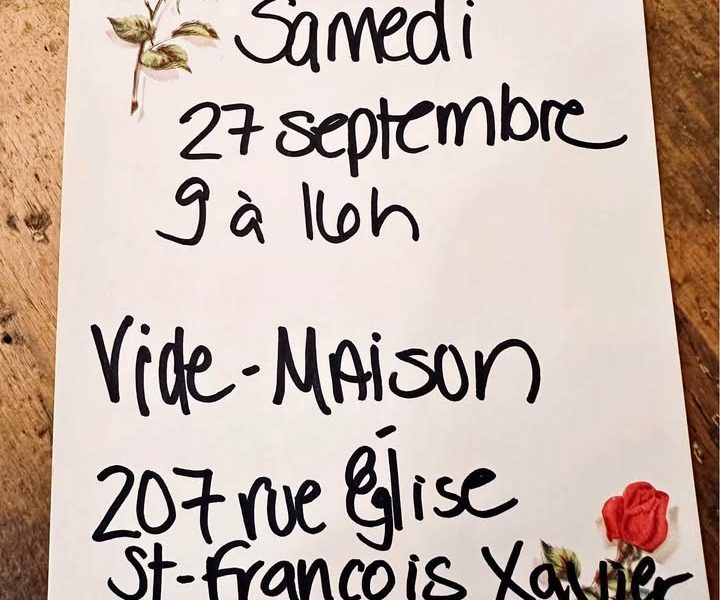 Samedi
27 septembre
9 à 16h
Vide-Maison
207 rue Église
St-François Xavier